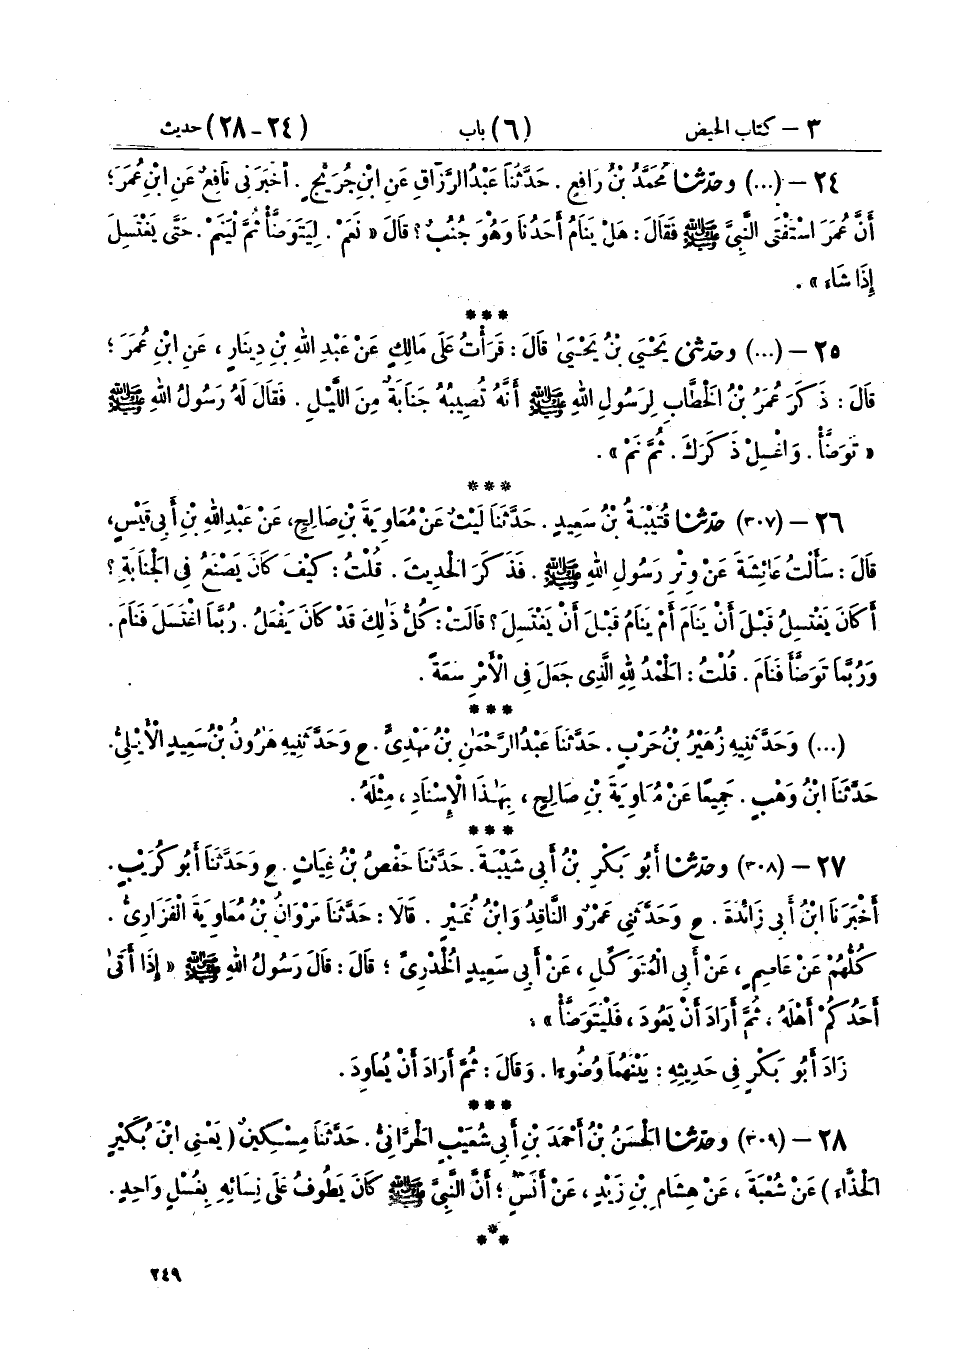 ٣ – كتاب الحيض (٦) باب (٢٤-٢٨) حديث
٢٤ – (...) وحدثنا مُحَمَّدُ بْنُ رَافِعٍ . حَدَّثَنَا عَبْدُ الرَّزَّاقِ عَنِ ابْنِ جُرَيْجٍ . أَخْبَرَنِي نَافِعٌ عَنِ ابْنِ عُمَرَ ؛
أَنَّ عُمَرَ اسْتَفْتَى النَّبِيَّ ﷺ فَقَالَ : هَلْ يَنَامُ أَحَدُنَا وَهُوَ جُنُبٌ ؟ قَالَ « نَعَمْ . لِيَتَوَضَّأْ ثُمَّ لْيَنَمْ . حَتَّى يَغْتَسِلَ
إِذَا شَاءَ » .
***
٢٥ – (...) وحدثني يَحْيَى بْنُ يَحْيَى قَالَ : قَرَأْتُ عَلَى مَالِكٍ عَنْ عَبْدِ اللهِ بْنِ دِينَارٍ ، عَنِ ابْنِ عُمَرَ ؛
قَالَ : ذَكَرَ عُمَرُ بْنُ الْخَطَّابِ لِرَسُولِ اللهِ ﷺ أَنَّهُ تُصِيبُهُ جَنَابَةٌ مِنَ اللَّيْلِ . فَقَالَ لَهُ رَسُولُ اللهِ ﷺ
« تَوَضَّأْ . وَاغْسِلْ ذَكَرَكَ . ثُمَّ نَمْ » .
***
٢٦ – (٣٠٧) حدثنا قُتَيْبَةُ بْنُ سَعِيدٍ . حَدَّثَنَا لَيْثٌ عَنْ مُعَاوِيَةَ بْنِ صَالِحٍ، عَنْ عَبْدِ اللهِ بْنِ أَبِي قَيْسٍ،
قَالَ : سَأَلْتُ عَائِشَةَ عَنْ وِتْرِ رَسُولِ اللهِ ﷺ . فَذَكَرَ الْحَدِيثَ . قُلْتُ : كَيْفَ كَانَ يَصْنَعُ فِي الْجَنَابَةِ ؟
أَكَانَ يَغْتَسِلُ قَبْلَ أَنْ يَنَامَ أَمْ يَنَامُ قَبْلَ أَنْ يَغْتَسِلَ ؟ قَالَتْ : كُلُّ ذَٰلِكَ قَدْ كَانَ يَفْعَلُ . رُبَّمَا اغْتَسَلَ فَنَامَ .
وَرُبَّمَا تَوَضَّأَ فَنَامَ . قُلْتُ : الْحَمْدُ لِلهِ الَّذِي جَعَلَ فِي الْأَمْرِ سَعَةً .
***
(...) وَحَدَّثَنِيهِ زُهَيْرُ بْنُ حَرْبٍ . حَدَّثَنَا عَبْدُ الرَّحْمَٰنِ بْنُ مَهْدِيٍّ . ح وَحَدَّثَنِيهِ هَٰرُونُ بْنُ سَعِيدٍ الْأَيْلِيُّ .
حَدَّثَنَا ابْنُ وَهْبٍ . جَمِيعًا عَنْ مُعَاوِيَةَ بْنِ صَالِحٍ ، بِهَٰذَا الْإِسْنَادِ ، مِثْلَهُ .
***
٢٧ – (٣٠٨) وحدثنا أَبُو بَكْرِ بْنُ أَبِي شَيْبَةَ . حَدَّثَنَا حَفْصُ بْنُ غِيَاثٍ . ح وَحَدَّثَنَا أَبُو كُرَيْبٍ .
أَخْبَرَنَا ابْنُ أَبِي زَائِدَةَ . ح وَحَدَّثَنِي عَمْرٌو النَّاقِدُ وَابْنُ نُمَيْرٍ . قَالَا : حَدَّثَنَا مَرْوَانُ بْنُ مُعَاوِيَةَ الْفَزَارِيُّ .
كُلُّهُمْ عَنْ عَاصِمٍ ، عَنْ أَبِي الْمُتَوَكِّلِ ، عَنْ أَبِي سَعِيدٍ الْخُدْرِيِّ ؛ قَالَ : قَالَ رَسُولُ اللهِ ﷺ « إِذَا أَتَى
أَحَدُكُمْ أَهْلَهُ ، ثُمَّ أَرَادَ أَنْ يَعُودَ ، فَلْيَتَوَضَّأْ » ؛
زَادَ أَبُو بَكْرٍ فِي حَدِيثِهِ : بَيْنَهُمَا وُضُوءًا . وَقَالَ : ثُمَّ أَرَادَ أَنْ يُعَاوِدَ .
***
٢٨ – (٣٠٩) وحدثنا الْحَسَنُ بْنُ أَحْمَدَ بْنِ أَبِي شُعَيْبٍ الْحَرَّانِيُّ . حَدَّثَنَا مِسْكِينٌ ( يَعْنِي ابْنَ بُكَيْرٍ
الْحَذَّاءَ ) عَنْ شُعْبَةَ ، عَنْ هِشَامِ بْنِ زَيْدٍ ، عَنْ أَنَسٍ ؛ أَنَّ النَّبِيَّ ﷺ كَانَ يَطُوفُ عَلَى نِسَائِهِ بِغُسْلٍ وَاحِدٍ .
***
٢٤٩